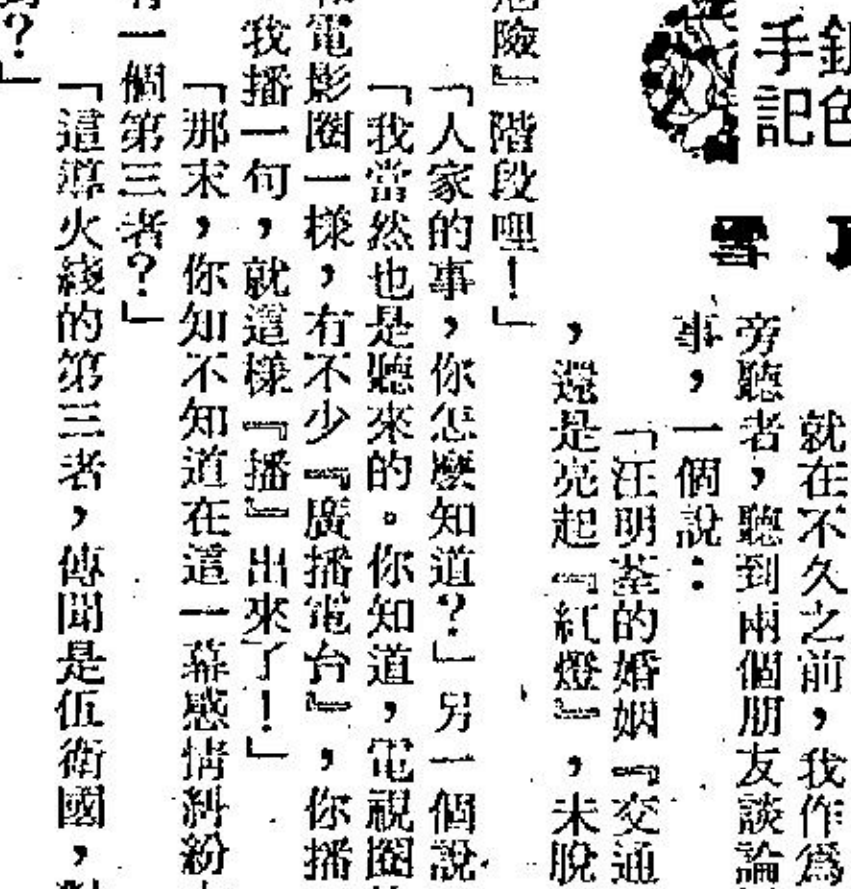 銀色
手記
雪
就在不久之前，我作爲
旁聽者，聽到兩個朋友談論
事，一個說：
「汪明荃的婚姻『交通
，還是亮起『紅燈』，未脫
危險』階段哩！」
「人家的事，你怎麼知道？」另一個說
「我當然也是聽來的。你知道，電視圈
電影圈一樣，有不少『廣播電台』，你播
我播一句，就這樣『播』出來了！」
「那末，你知不知道在這一幕感情糾紛
有一個第三者？」
「這導火綫的第三者，傳聞是伍衛國，
？」